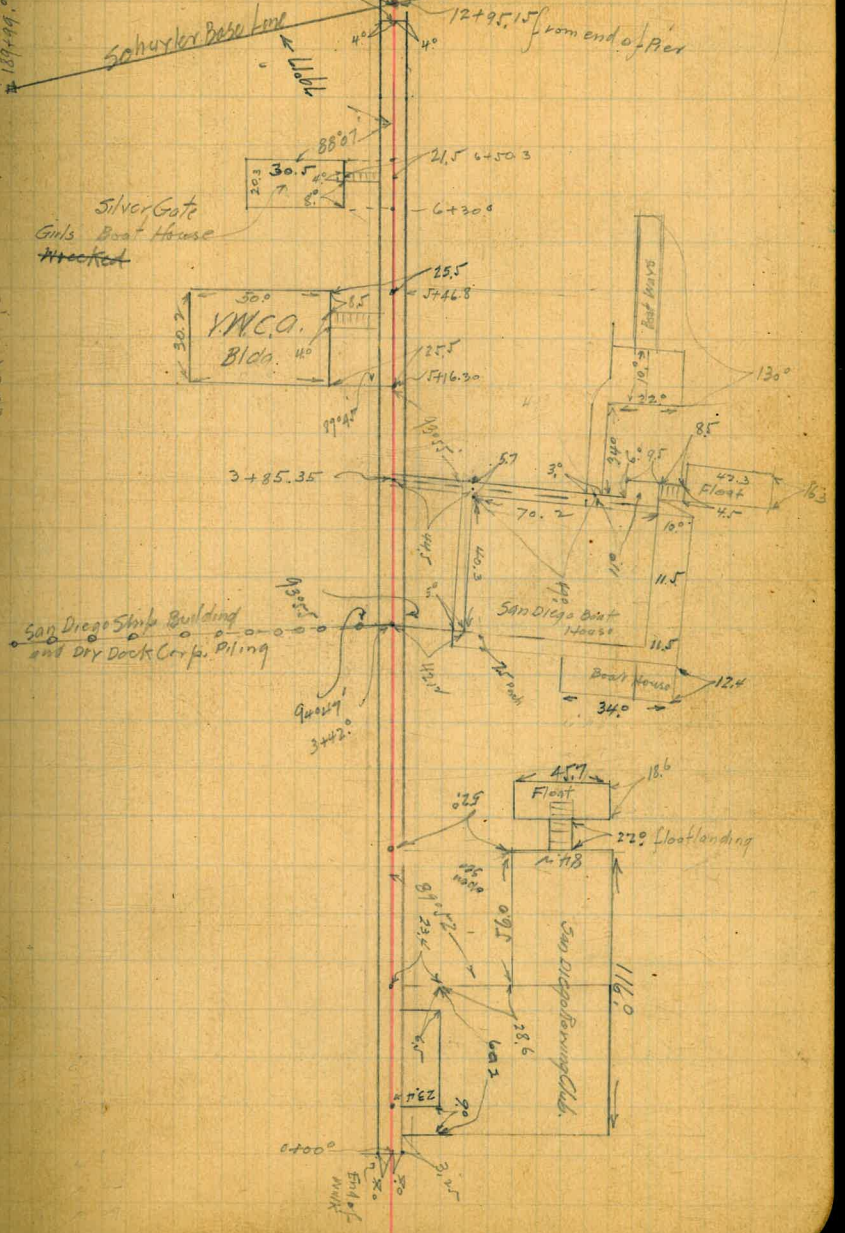 189+99.
Schuyler Base Line
12+95.15 from end of Pier
4.0
4.0
88°07
30.5
20.3
4.0
8.0
21.5 6+50.3
6+30.0
Silver Gate
Girls Boat House
Wrecked
25.5
5+46.8
50.0
8.5
30.2
Y.M.C.A.
Bldg.
4.0
25.5
5+16.30
89°45'
93°55'
Boat Ways
10.0
22.0
130.0
34.0
9.5
8.5
3+85.35
5.7
3.0
42.3
Float
16.3
4.5
70.2
10.0
44.5
40.3
11.0
11.5
San Diego Boat
House
11.5
93°55
San Diego Ship Building
and Dry Dock Corp. Piling
94°49'
3+42.0
Boat House
12.4
34.0
45.7
Float
18.6
52.0
22.0 float landing
89°52
23.4
56.0
San Diego Rowing Club.
116.0
28.6
6.5
23.4
9.0
3.25
0+00.0
8.0
End of
Walk